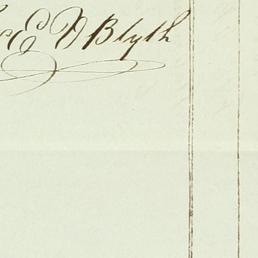 E D Blyth